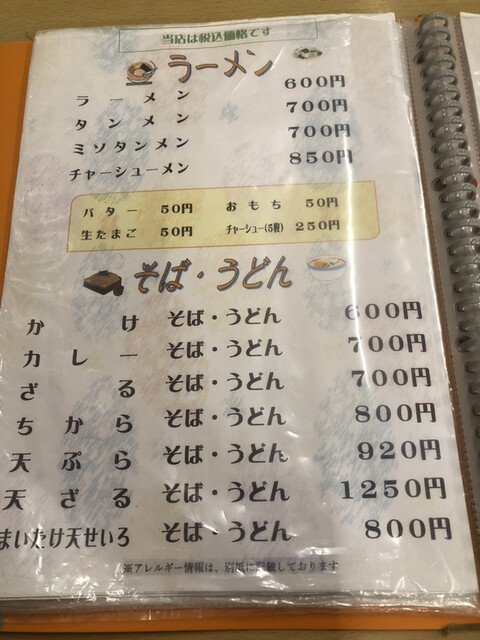 当店は税込価格です
ラーメン
ラーメン 600円
タンメン 700円
ミソタンメン 700円
チャーシューメン 850円
バター 50円 おもち 50円
生たまご 50円 チャーシュー(5枚) 250円
そば・うどん
かけ そば・うどん 600円
カレー そば・うどん 700円
ざる そば・うどん 700円
ちから そば・うどん 800円
天ぷら そば・うどん 920円
天ざる そば・うどん 1250円
まいたけ天せいろ そば・うどん 800円
※アレルギー情報は、別紙に記載しております